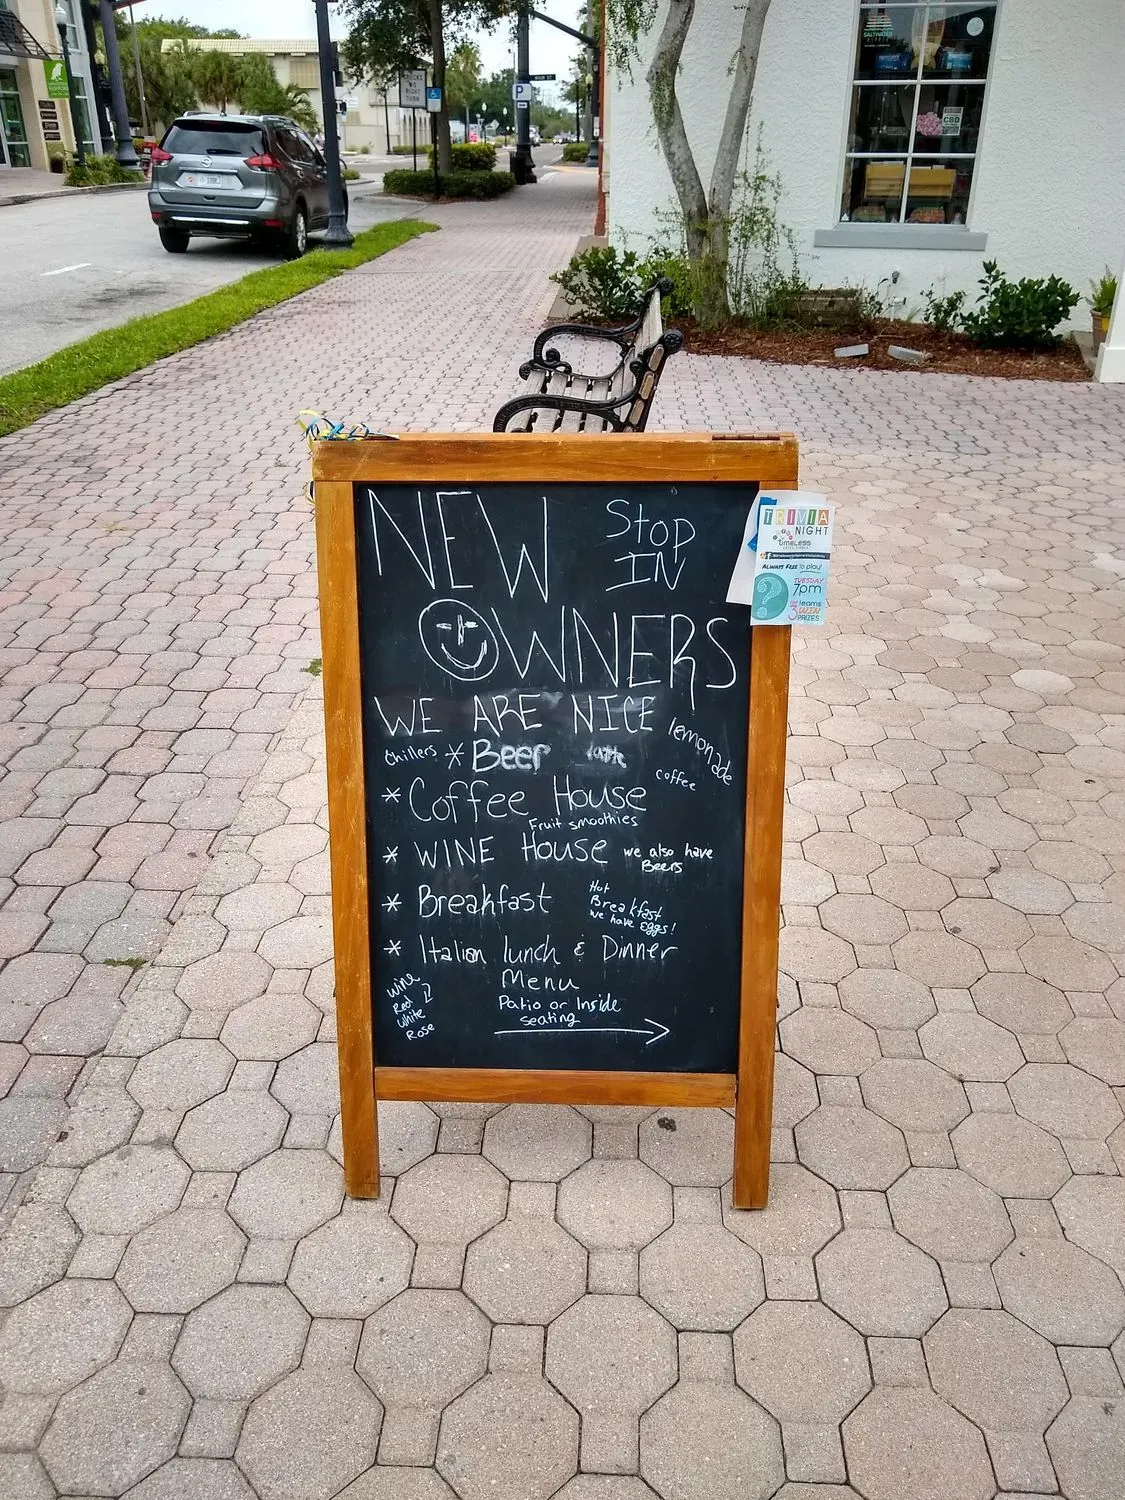 NEW Stop
IN
OWNERS
WE ARE NICE lemonade
Chillers * Beer latte
coffee
* Coffee House
Fruit smoothies
* WINE House we also have
Beers
* Breakfast Hot
Breakfast
we have Eggs!
* Italian lunch & Dinner
Menu
wine
Red
white
Rose
Patio or Inside
seating
TRIVIA
NIGHT
timeless
ALWAYS FREE to play!
TUESDAY
7pm
teams
3 WIN
PRIZES
TRUCKS
NO
RIGHT
TURN
P
CBD